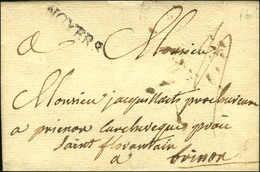 NOYERS
a Monsieur
Monsieur jacquillats procureur
a prienon larcheveque près
Saint florentain
a brinon